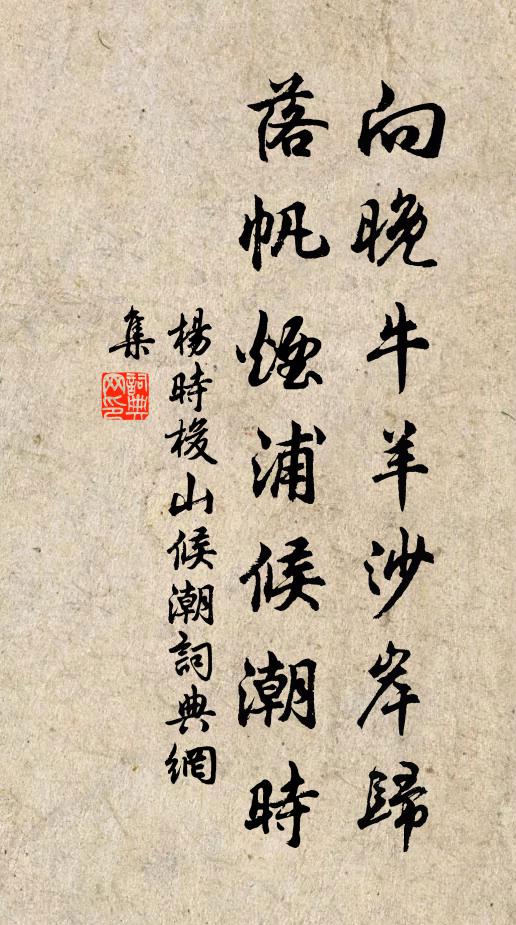 向晚牛羊沙岸歸
落帆煙浦候潮時
楊時梭山候潮詞典網
集
詞典
网印